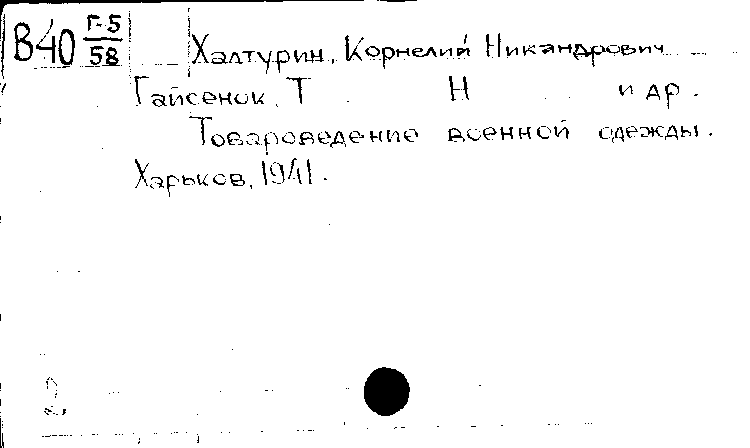 В40 Г-5/58 Халтурин, Корнелий Никандрович
Гайсенок, Т Н и др.
Товароведение военной одежды.
Харьков, 1941.
2.